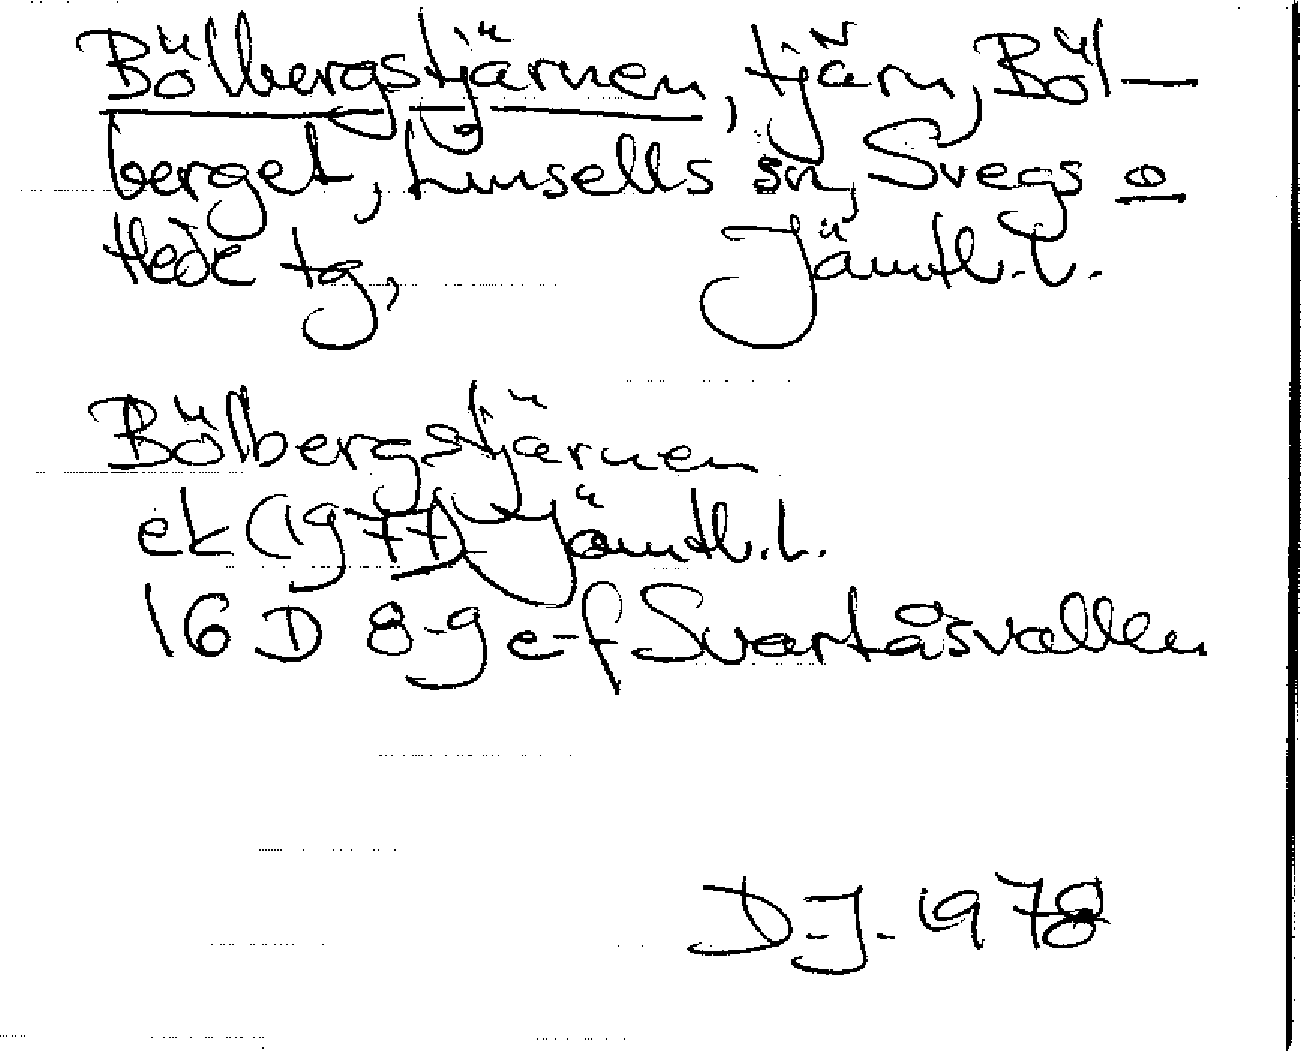 Bölbergstjärnen, tjärn, Böl-
berget, Linsells sn, Svegs o
Hede tg, Jämtl. l.
Bölbergstjärnen
ek (1977) Jämtl. l.
16 D 8-9 e-f Svartåsvallen
D.J. 1978